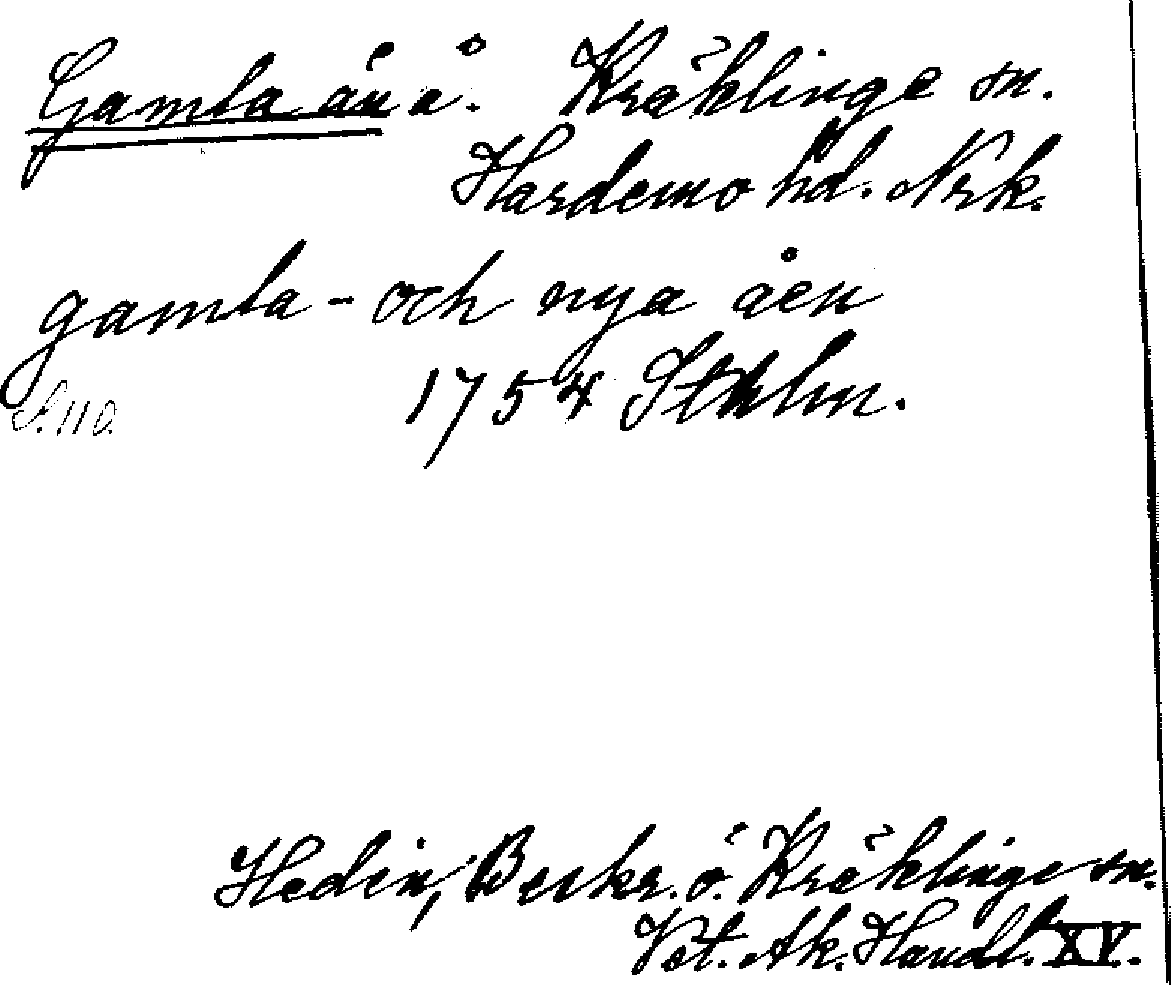 Gamla ån å. Kräklinge sn.
Hardemo hd. Nrk.
gamla - och nya åen
S. 110. 1754 Sthlm.
Hedin, Beskr. ö. Kräklinge sn.
Vet. Ak. Handl. XV.